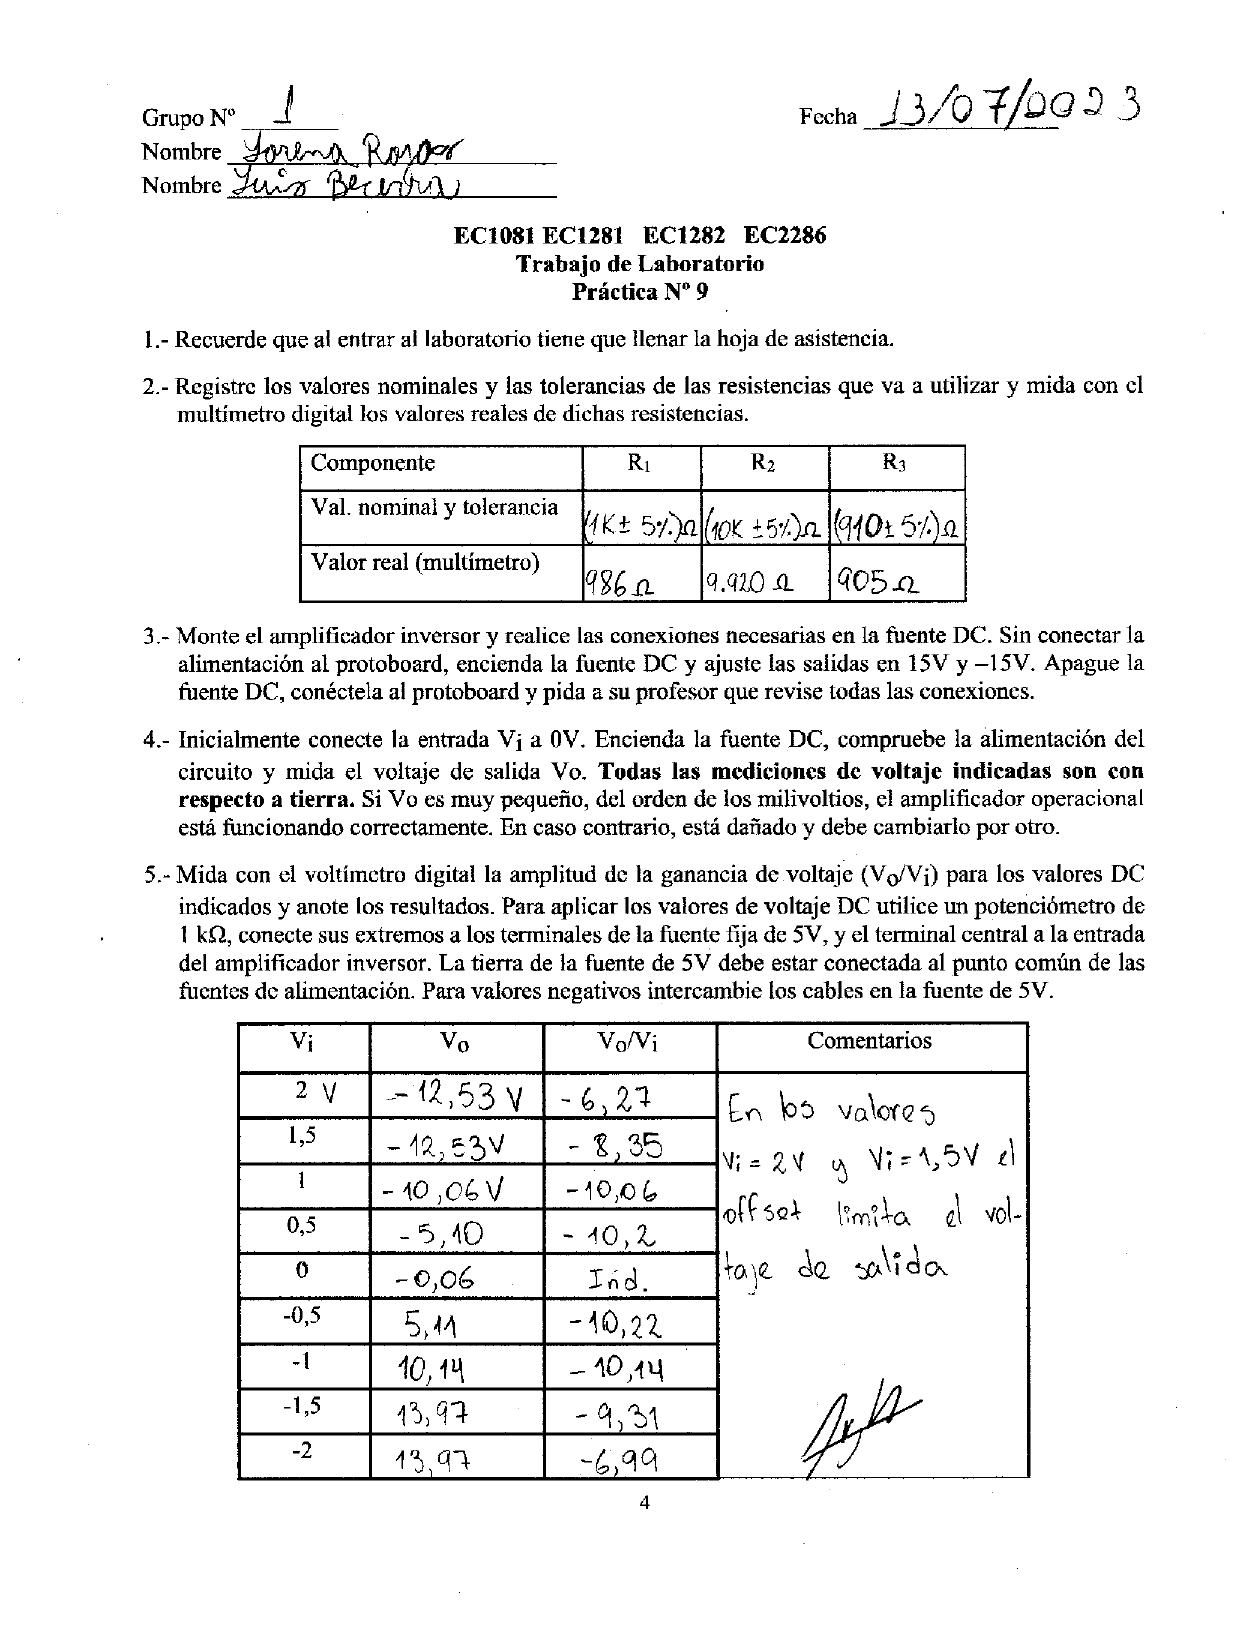 Grupo Nº 1
Fecha 13/07/2023
Nombre Lorena Rojas
Nombre Luis Becerra
EC1081 EC1281 EC1282 EC2286
Trabajo de Laboratorio
Práctica Nº 9
1.- Recuerde que al entrar al laboratorio tiene que llenar la hoja de asistencia.
2.- Registre los valores nominales y las tolerancias de las resistencias que va a utilizar y mida con el
multímetro digital los valores reales de dichas resistencias.
Componente R1 R2 R3
Val. nominal y tolerancia (1K± 5%)Ω (10K ±5%)Ω (910± 5%)Ω
Valor real (multímetro) 986 Ω 9.920 Ω 905 Ω
3.- Monte el amplificador inversor y realice las conexiones necesarias en la fuente DC. Sin conectar la
alimentación al protoboard, encienda la fuente DC y ajuste las salidas en 15V y –15V. Apague la
fuente DC, conéctela al protoboard y pida a su profesor que revise todas las conexiones.
4.- Inicialmente conecte la entrada Vi a 0V. Encienda la fuente DC, compruebe la alimentación del
circuito y mida el voltaje de salida Vo. Todas las mediciones de voltaje indicadas son con
respecto a tierra. Si Vo es muy pequeño, del orden de los milivoltios, el amplificador operacional
está funcionando correctamente. En caso contrario, está dañado y debe cambiarlo por otro.
5.- Mida con el voltímetro digital la amplitud de la ganancia de voltaje (Vo/Vi) para los valores DC
indicados y anote los resultados. Para aplicar los valores de voltaje DC utilice un potenciómetro de
1 kΩ, conecte sus extremos a los terminales de la fuente fija de 5V, y el terminal central a la entrada
del amplificador inversor. La tierra de la fuente de 5V debe estar conectada al punto común de las
fuentes de alimentación. Para valores negativos intercambie los cables en la fuente de 5V.
Vi Vo Vo/Vi Comentarios
2 V -12,53 V -6,27
1,5 -12,53V -8,35
1 -10,06V -10,06
0,5 -5,10 -10,2
0 -0,06 Ind.
-0,5 5,11 -10,22
-1 10,14 -10,14
-1,5 13,97 -9,31
-2 13,97 -6,99
En los valores
Vi = 2V y Vi = 1,5V el
offset limita el vol-
taje de salida
4